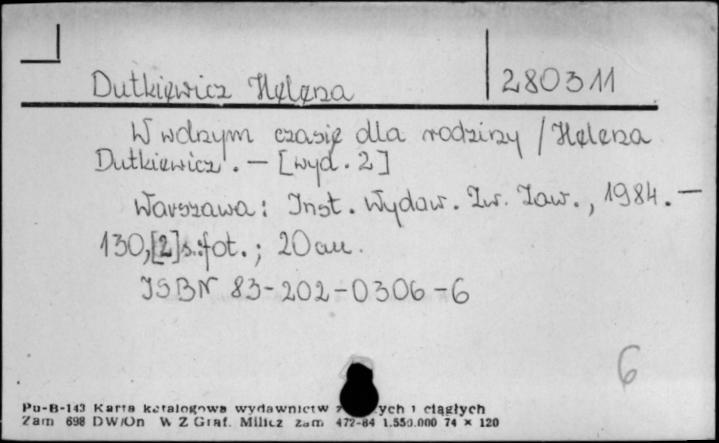 Dutkiewicz Helena 280311
W wolnym czasie dla rodziny / Helena
Dutkiewicz. — [wyd. 2]
Warszawa: Inst. Wydaw. Zw. Zaw., 1984. —
130,[2]s.:fot.; 20cm.
ISBN 83-202-0306-6
6
Pu-B-143 Karta katalogowa wydawnictw ych i ciągłych
Zam 698 DW/On W Z Graf. Milicz zam 472-84 1.550.000 74 × 120